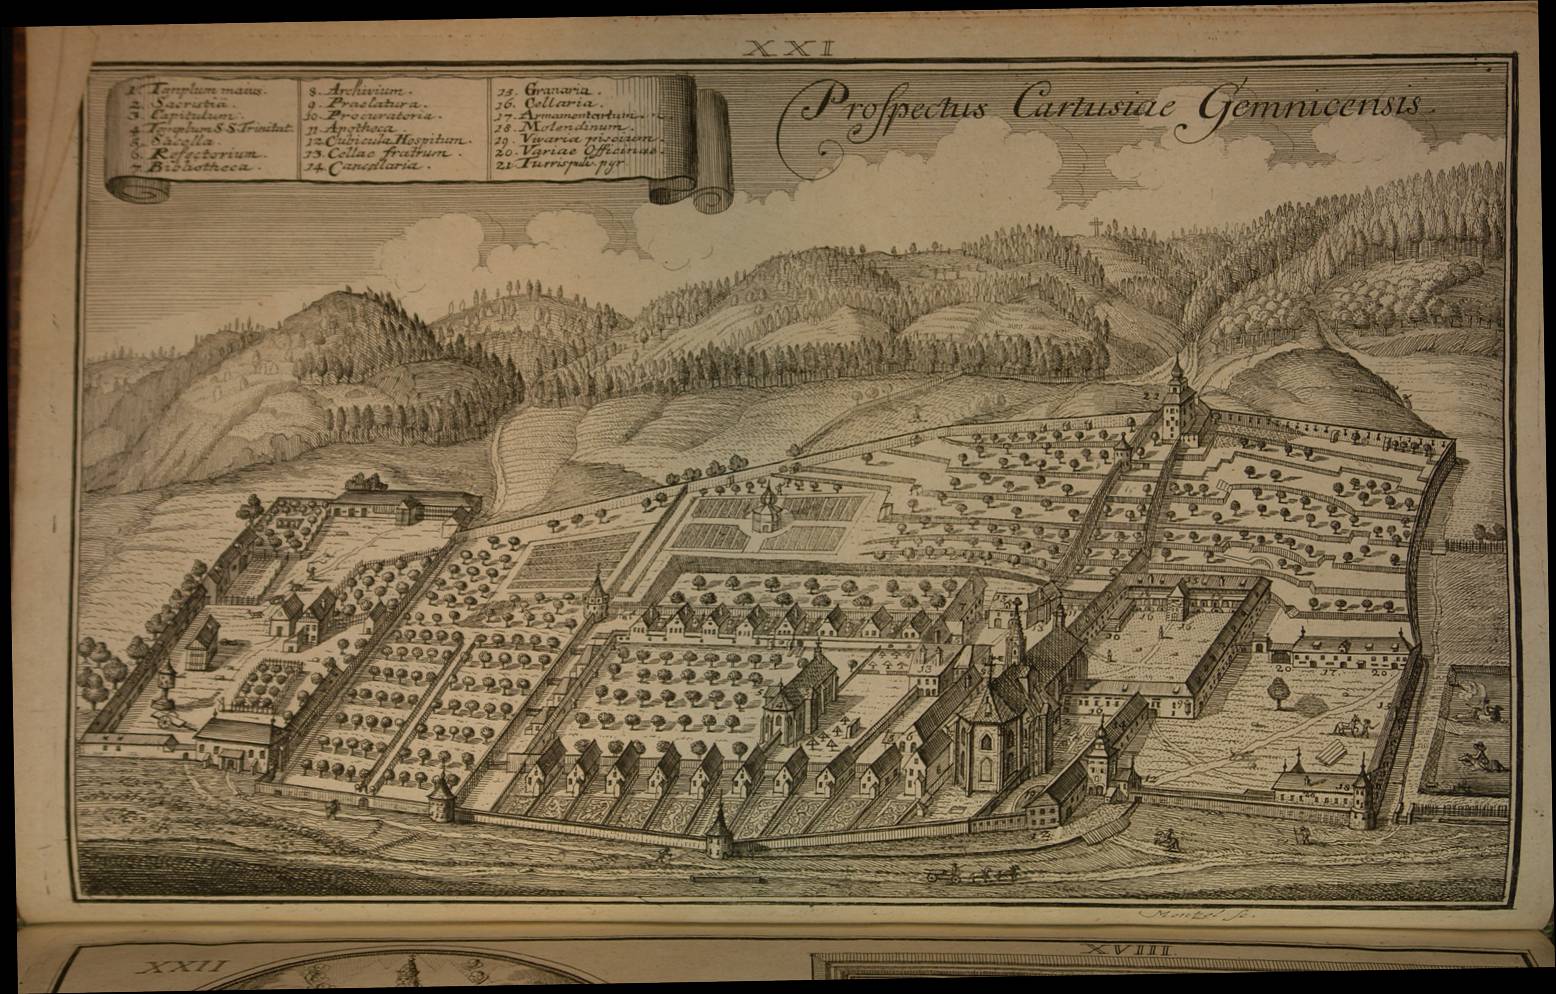 XXI
Prospectus Cartusiae Gemnicensis.
1. Templum maius.
2. Sacristia.
3. Capitulum.
4. Templum S.S. Trinitat.
5. Sacella.
6. Refectorium.
7. Biblotheca.
8. Archivium.
9. Praelatura.
10. Procuratoria.
11. Apotheca.
12. Cubicula Hospitum.
13. Cellae fratrum.
14. Cancellaria.
15. Granaria.
16. Cellaria.
17. Armamentarium.
18. Molendinum.
19. Vivaria piscium.
20. Variae Officinae.
21. Turris pulv. pyr
XXII
XVIII